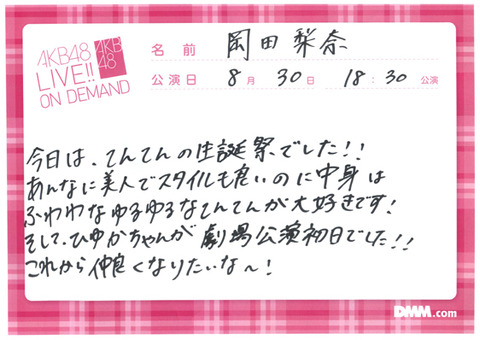 AKB48
LIVE!!
ON DEMAND
AKB
48
名前 岡田梨奈
公演日 8月30日 18:30公演
今日は、てんてんの生誕祭でした!!
あんなに美人でスタイルも良いのに中身は
ふわわなゆるゆるなてんてんが大好きです!
そして、ひゆかちゃんが劇場公演初日でした!!
これから仲良くなりたいな〜!
DMM.com